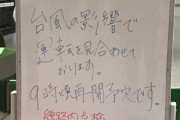 台風の影響で
運転を見合わせて
おります。
9時頃再開予定です。
線路内点検